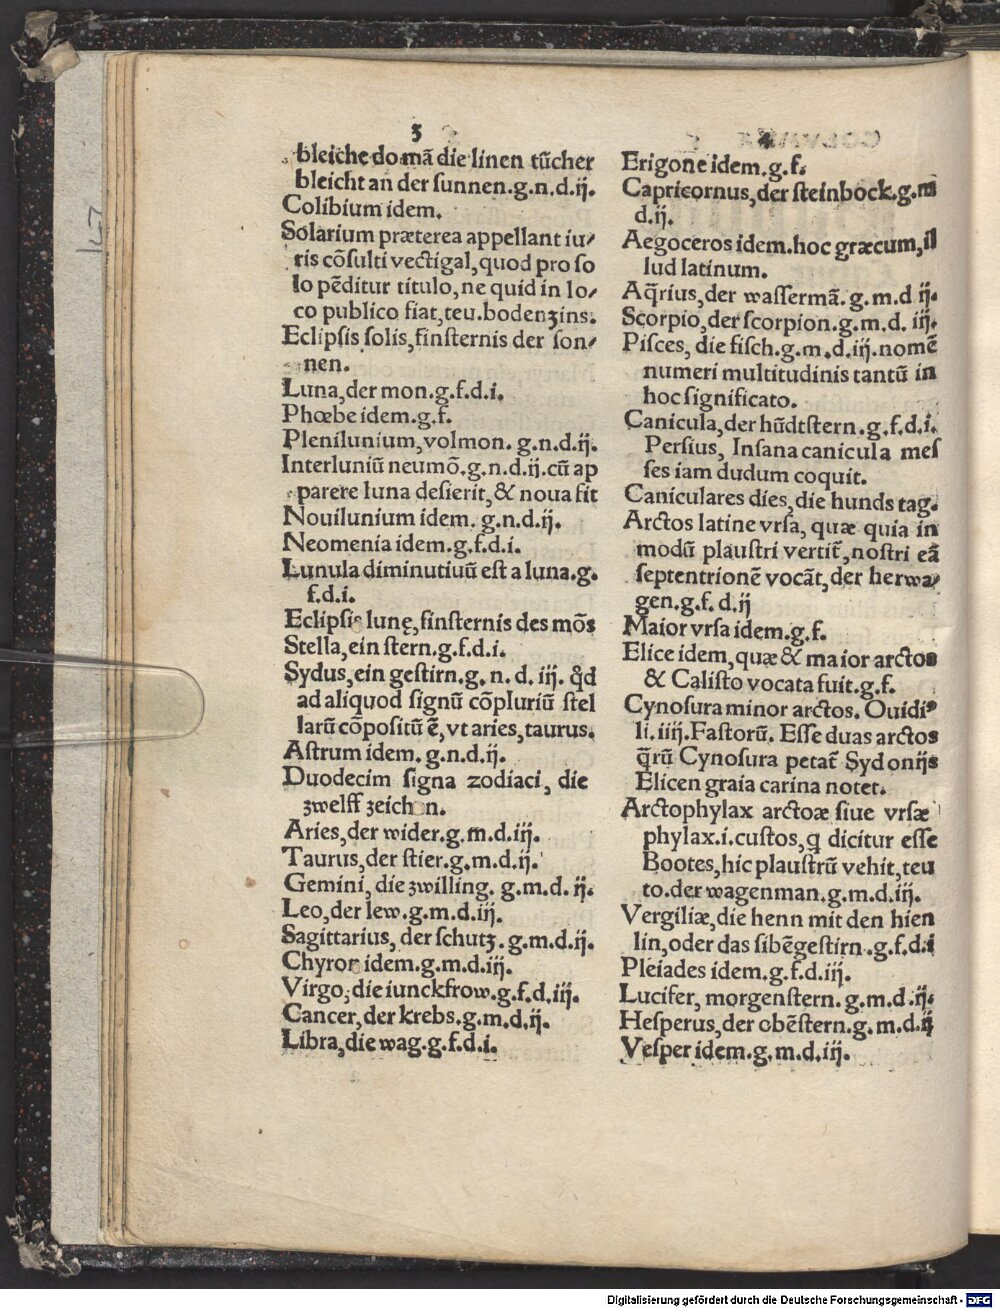 3
bleiche do mā die linen tücher
bleicht an der sunnen.g.n.d.ij.
Colibium idem.
Solarium præterea appellant iu/
ris cōsulti vectigal, quod pro so
lo pēditur titulo, ne quid in lo/
co publico fiat, teu. bodenzins.
Eclipsis solis, finsternis der son/
nen.
Luna, der mon.g.f.d.i.
Phœbe idem.g.f.
Plenilunium, volmon. g.n.d.ij.
Interluniū neumō.g.n.d.ij.cū ap
parere luna desierit, & noua sit
Nouilunium idem. g.n.d.ij.
Neomenia idem.g.f.d.i.
Lunula diminutiuū est a luna.g.
f.d.i.
Eclipsis lunę, finsternis des mōs
Stella, ein stern.g.f.d.i.
Sydus, ein gestirn.g. n. d. iij. qd̄
ad aliquod signū cōpluriū stel
larū cōpositū ē, vt aries, taurus.
Astrum idem. g.n.d.ij.
Duodecim signa zodiaci, die
zwelff zeichen.
Aries, der wider.g.m.d.iij.
Taurus, der stier.g.m.d.ij.
Gemini, die zwilling. g.m.d.ij.
Leo, der lew.g.m.d.iij.
Sagittarius, der schutz. g.m.d.ij.
Chyron idem.g.m.d.iij.
Virgo, die iunckfrow.g.f.d.iij.
Cancer, der krebs.g.m.d.ij.
Libra, die wag.g.f.d.i.
4
Erigone idem.g.f.
Capricornus, der steinbock.g.m
d.ij.
Aegoceros idem. hoc græcum, il
lud latinum.
Aq̄rius, der wassermā. g.m.d ij.
Scorpio, der scorpion.g.m.d. iij.
Pisces, die fisch.g.m.d.iij.nomē
numeri multitudinis tantū in
hoc significato.
Canicula, der hūdtstern.g.f.d.i.
Persius, Insana canicula mes
ses iam dudum coquit.
Caniculares dies, die hunds tag.
Arctos latine vrsa, quæ quia in
modū plaustri vertit̄, nostri eā
septentrionē vocāt, der herwa/
gen.g.f. d.ij
Maior vrsa idem.g.f.
Elice idem, quæ & maior arctos
& Calisto vocata fuit.g.f.
Cynosura minor arctos. Ouidiꝰ
li.iiij.Fastorū. Esse duas arctos
q̄rū Cynosura petat̄ Sydonijs
Elicen graia carina notet.
Arctophylax arctoæ siue vrsæ
phylax.i.custos, q dicitur esse
Bootes, hic plaustrū vehit, teu
to.der wagenman.g.m.d.iij.
Vergiliæ, die henn mit den hien
lin, oder das sibēgestirn.g.f.d.i
Pleiades idem.g.f.d.iij.
Lucifer, morgenstern. g.m.d.ij.
Hesperus, der obēstern.g. m.d.ij
Vesper idem.g.m.d.iij.
Digitalisierung gefördert durch die Deutsche Forschungsgemeinschaft - DFG